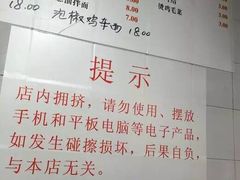 18.00 泡椒鸡杂面 18.00
8.00
7.00
3.00
提示
店内拥挤，请勿使用、摆放
手机和平板电脑等电子产品，
如发生碰擦损坏，后果自负，
与本店无关。